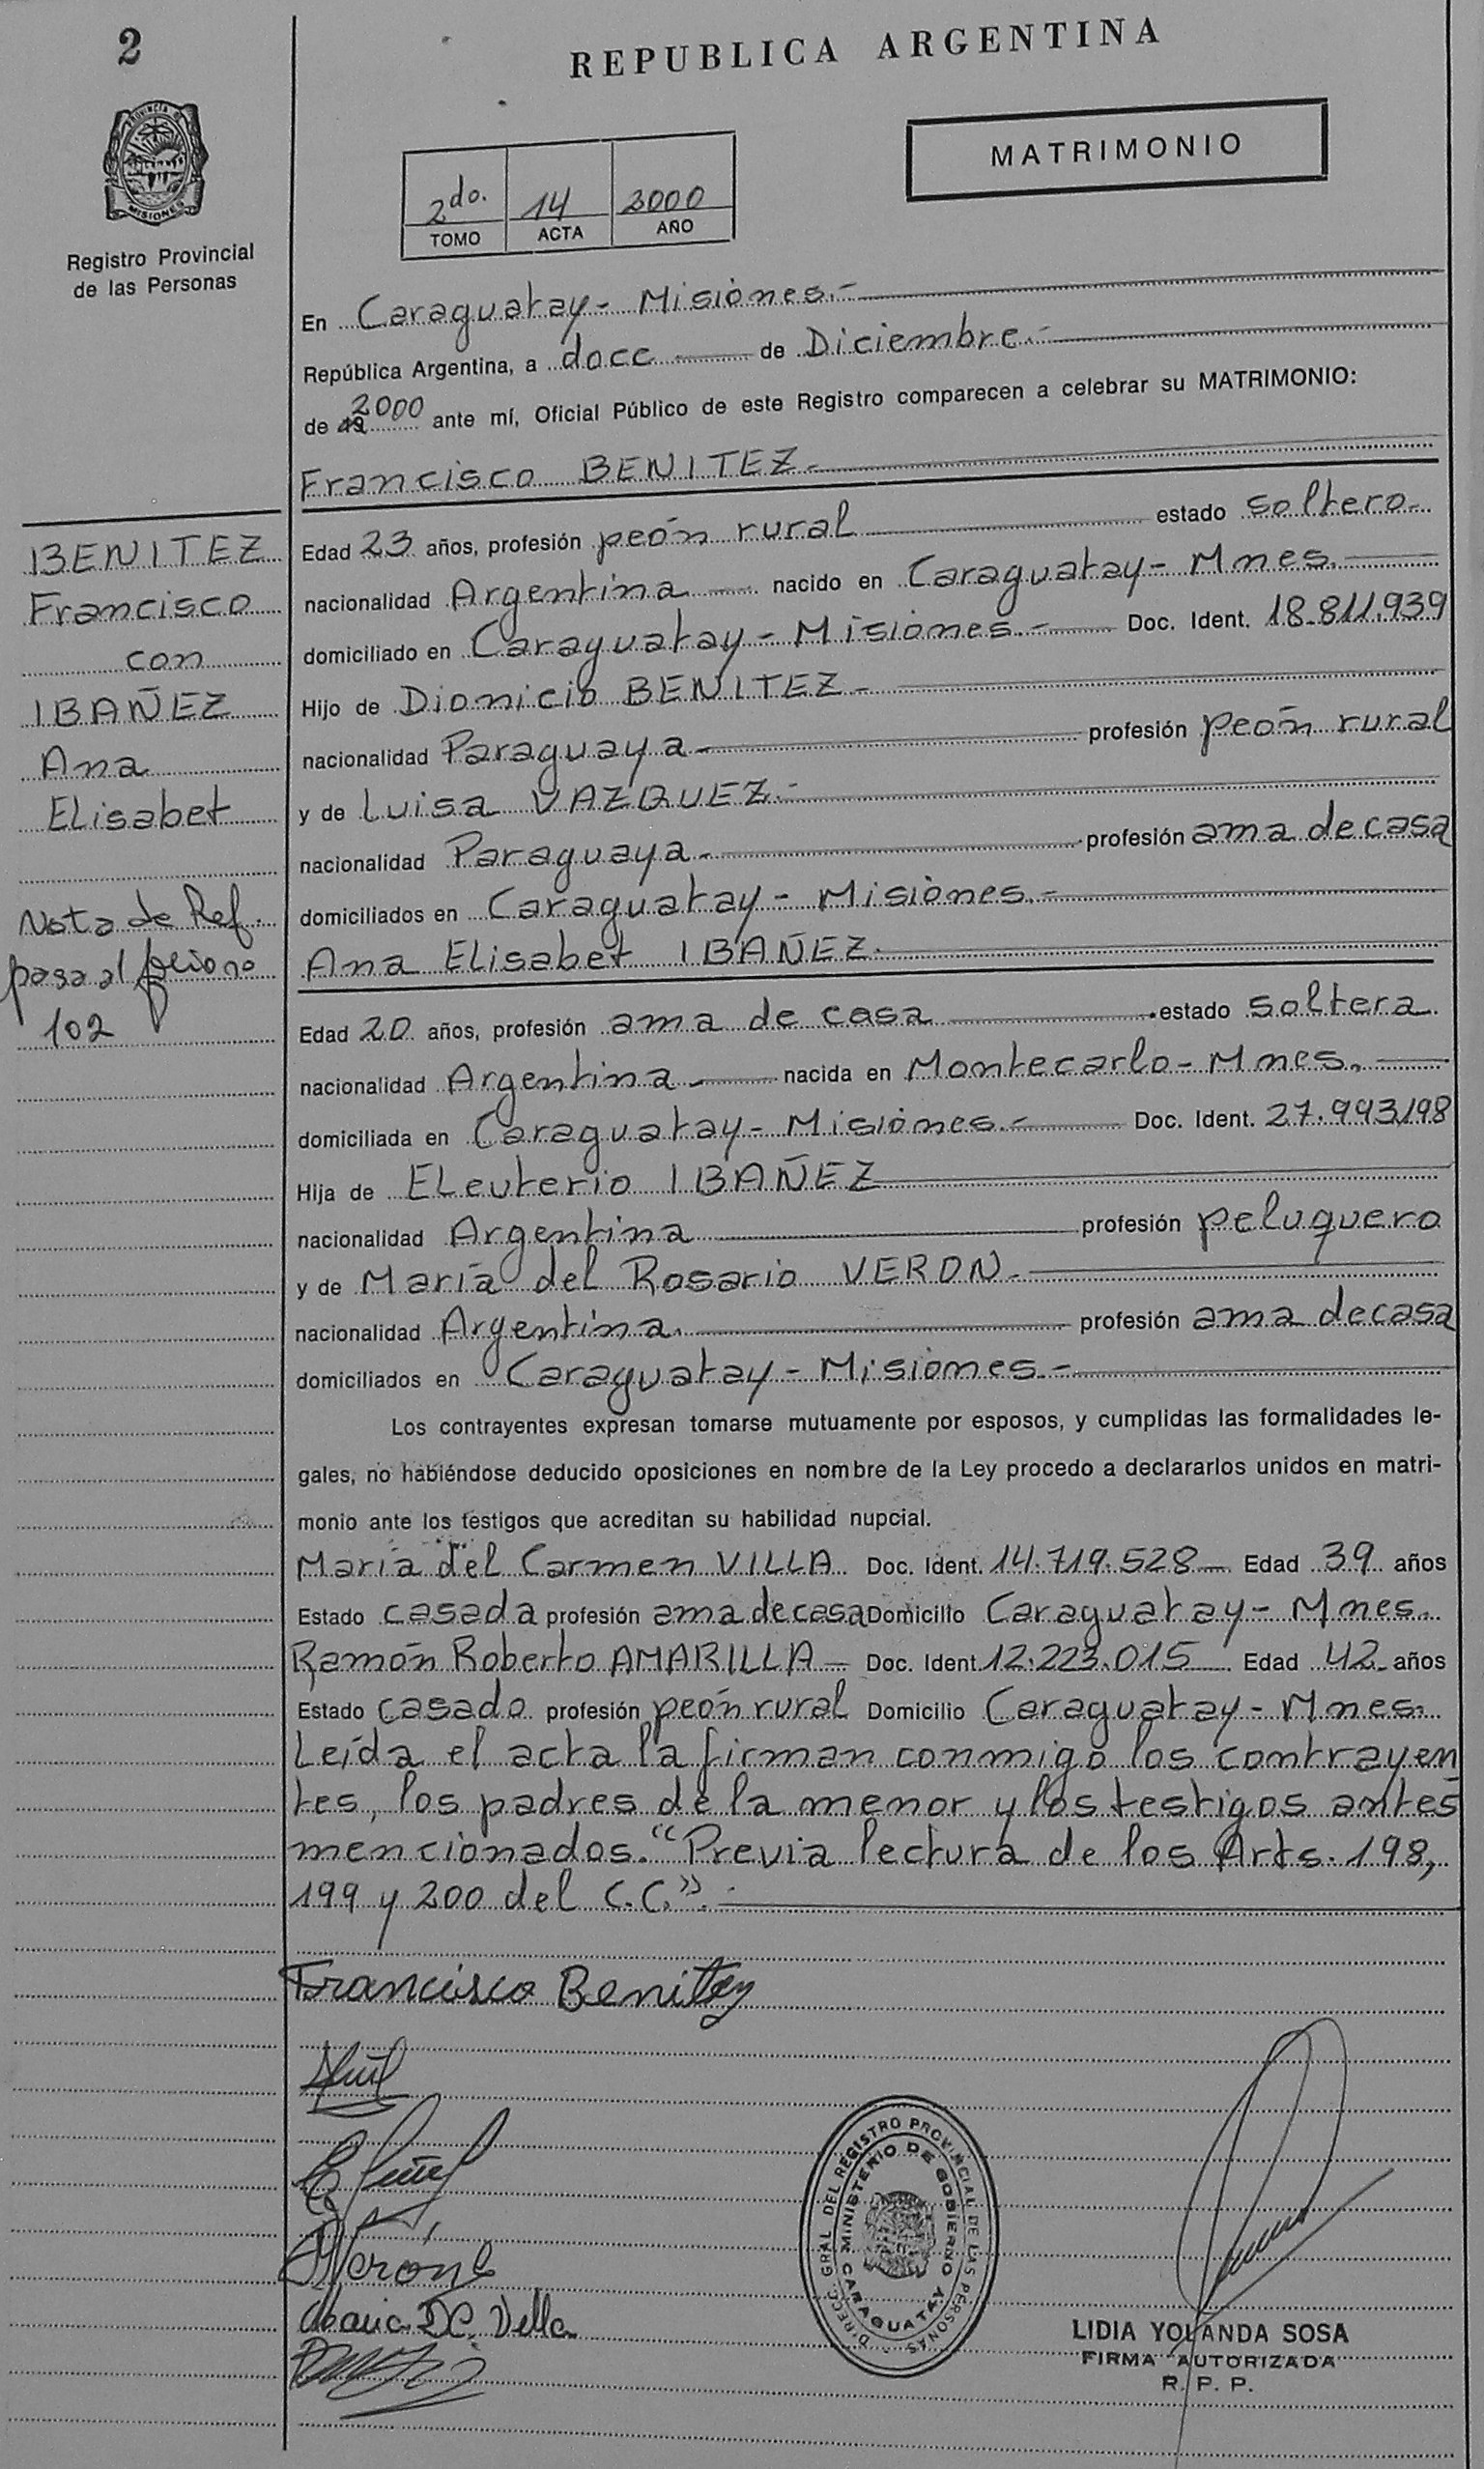 2
REPUBLICA ARGENTINA
MATRIMONIO
PROVINCIA D
MISIONES
Registro Provincial
de las Personas
2do. 14 2000
TOMO ACTA AÑO
En Caraguatay - Misiones.-
República Argentina, a doce de Diciembre.-
de 19 2000 ante mí, Oficial Público de este Registro comparecen a celebrar su MATRIMONIO:
Francisco BENITEZ.-
BENITEZ
Francisco
con
IBAÑEZ
Ana
Elisabet
Nota de Ref.
pasa al folio nº
102
Edad 23 años, profesión peón rural estado soltero.-
nacionalidad Argentina nacido en Caraguatay - Mnes.
domiciliado en Caraguatay - Misiones.- Doc. Ident. 18.811.939
Hijo de Dionicio BENITEZ.-
nacionalidad Paraguaya.- profesión peón rural
y de Luisa VAZQUEZ.-
nacionalidad Paraguaya.- profesión ama de casa
domiciliados en Caraguatay - Misiones.-
Ana Elisabet IBAÑEZ.
Edad 20 años, profesión ama de casa estado soltera.
nacionalidad Argentina.- nacida en Montecarlo - Mnes.
domiciliada en Caraguatay - Misiones.- Doc. Ident. 27.993.198
Hija de Eleuterio IBAÑEZ
nacionalidad Argentina profesión peluquero
y de María del Rosario VERON.-
nacionalidad Argentina. profesión ama de casa
domiciliados en Caraguatay - Misiones.-
Los contrayentes expresan tomarse mutuamente por esposos, y cumplidas las formalidades le-
gales, no habiéndose deducido oposiciones en nombre de la Ley procedo a declararlos unidos en matri-
monio ante los testigos que acreditan su habilidad nupcial.
María del Carmen VILLA Doc. Ident. 14.719.528 Edad 39 años
Estado casada profesión ama de casa Domicilio Caraguatay - Mnes.
Ramón Roberto AMARILLA Doc. Ident. 12.223.015 Edad 42 años
Estado casado profesión peón rural Domicilio Caraguatay - Mnes.
Leída el acta la firman conmigo los contrayen
tes, los padres de la menor y los testigos antes
mencionados. "Previa lectura de los Arts. 198,
199 y 200 del C.C.".-
Francisco Benitez
Maria D.C. Villa
DIRECC. GRAL DEL REGISTRO PROVINCIAL DE LAS PERSONAS
MINISTERIO DE GOBIERNO
CARAGUATAY
LIDIA YOLANDA SOSA
FIRMA AUTORIZADA
R. P. P.